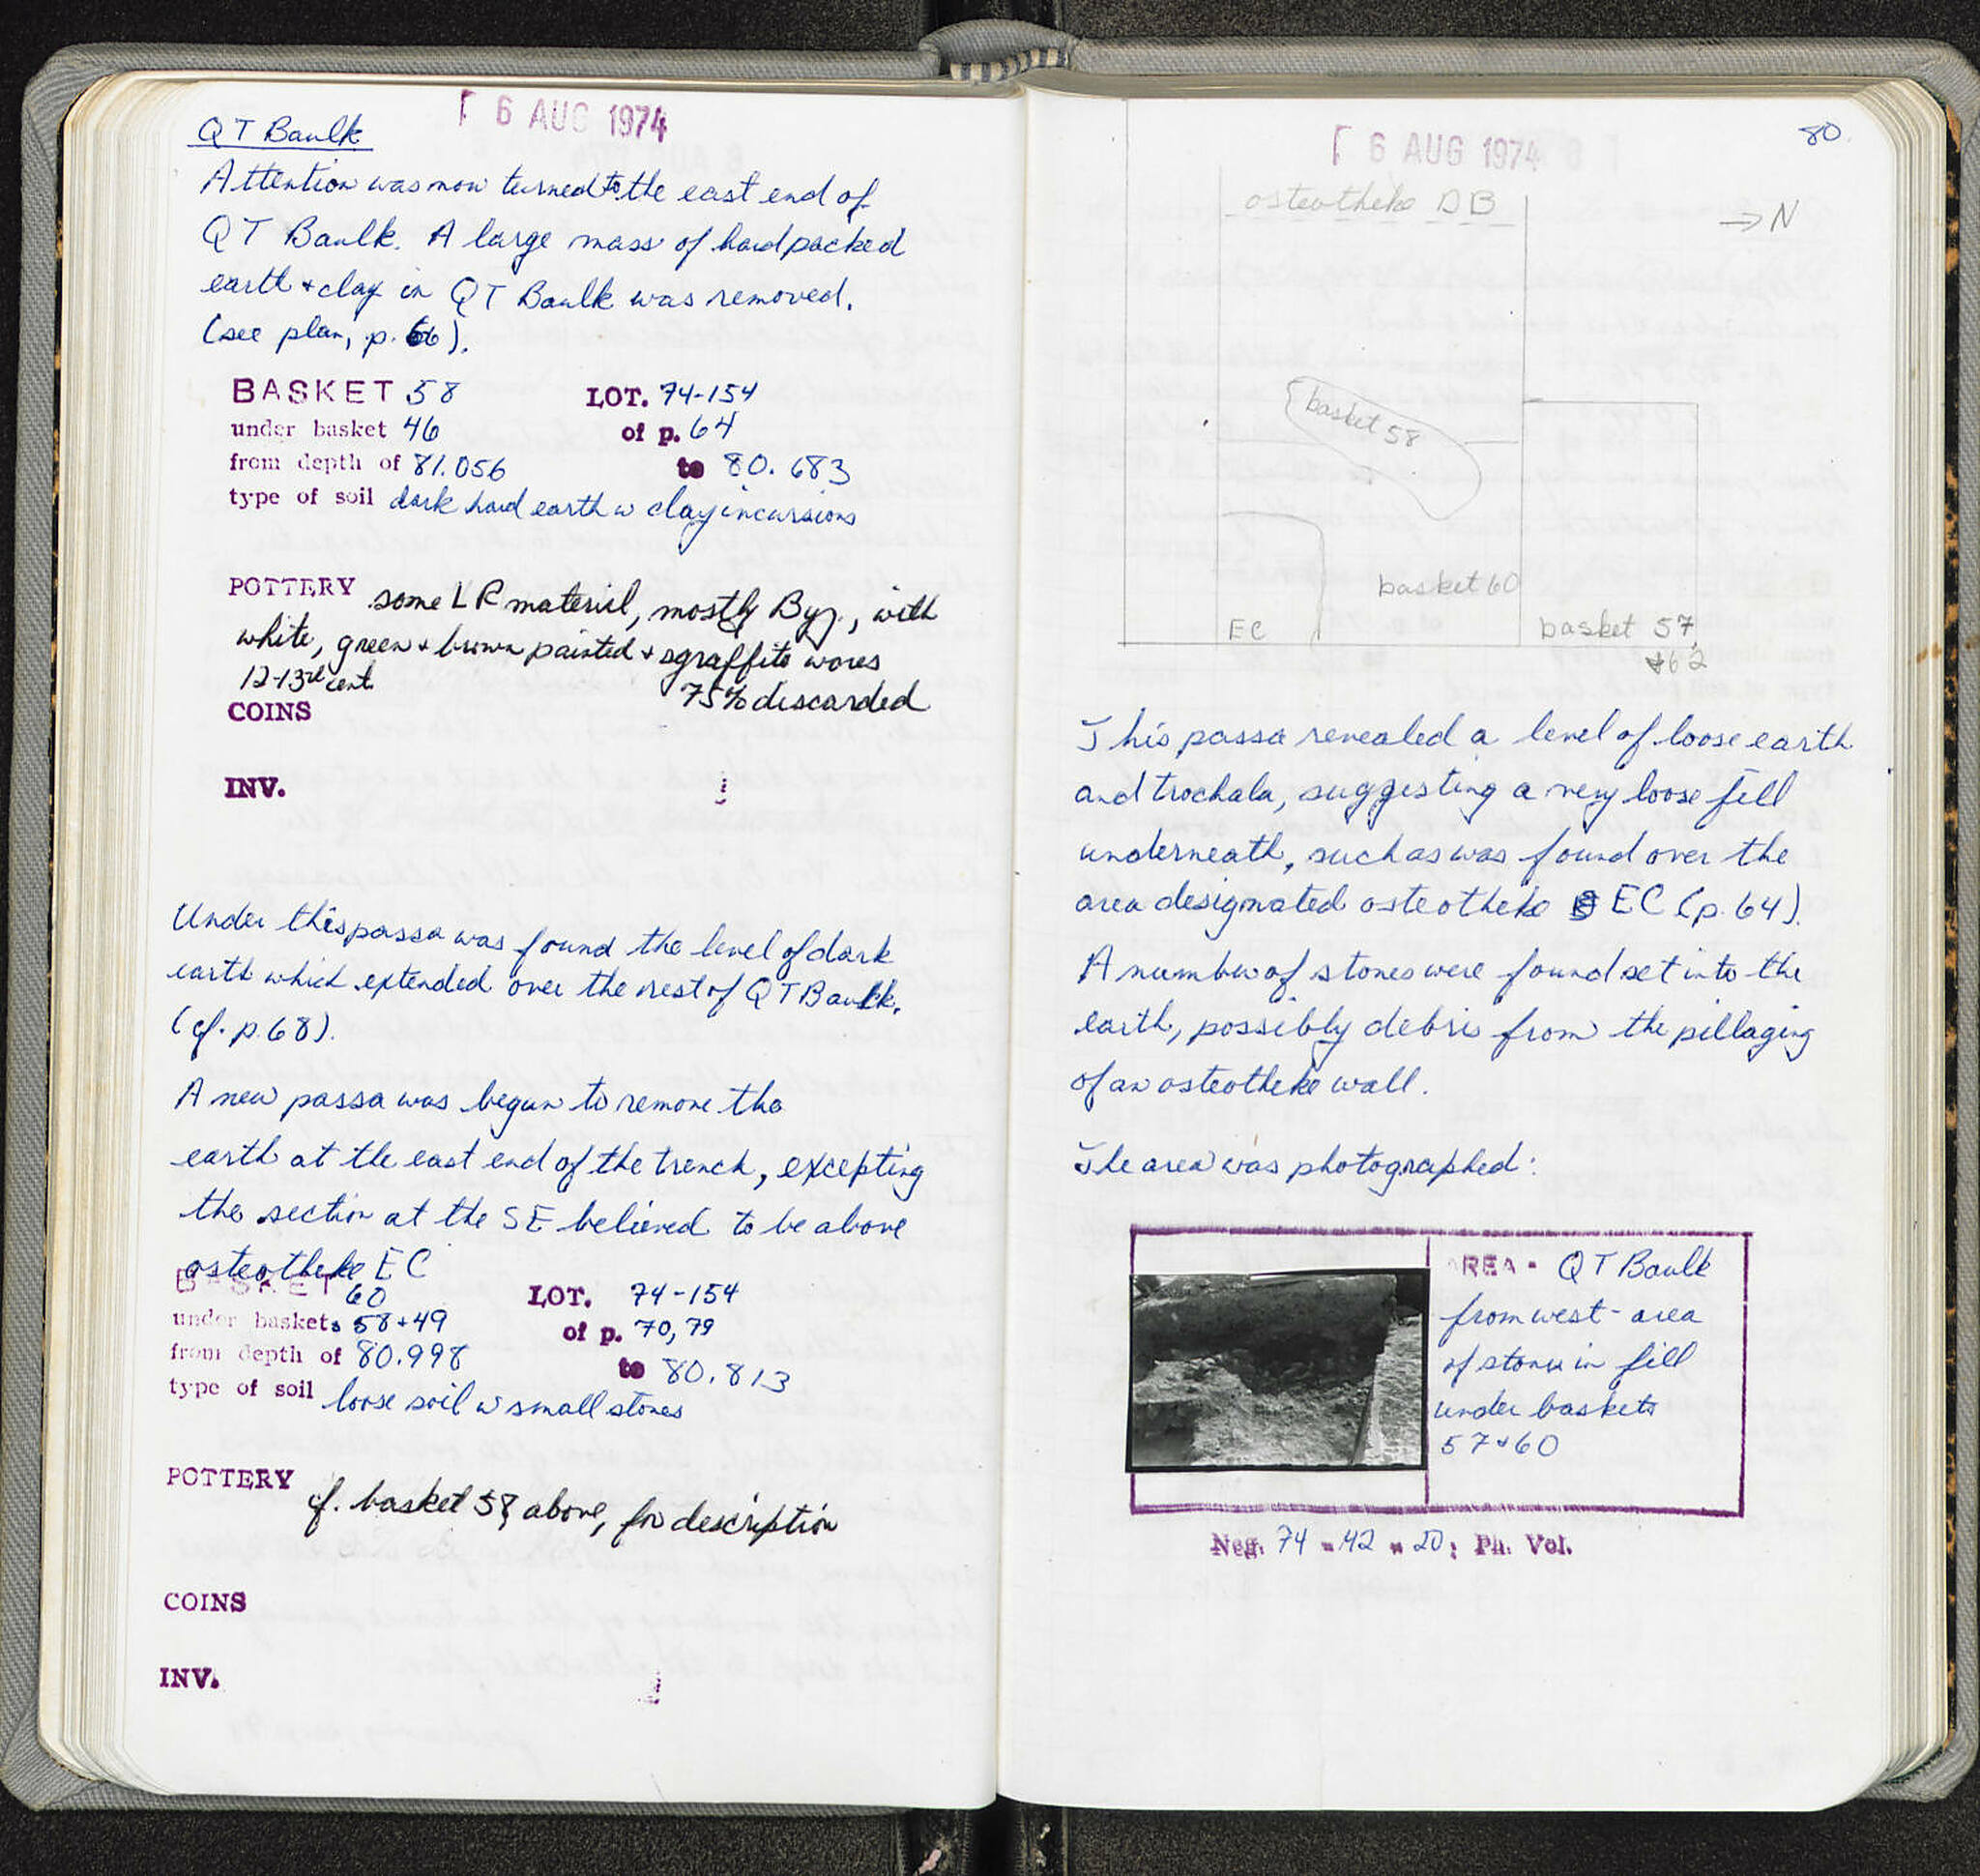 6 AUG 1974
QT Baulk
Attention was now turned to the east end of
QT Baulk. A large mass of hard packed
earth + clay in QT Baulk was removed.
(see plan, p. 66).
BASKET 58 LOT. 74-154
under basket 46 of p. 64
from depth of 81.056 to 80.683
type of soil dark hard earth w clay incursions
POTTERY some LR material, mostly Byz, with
white, green + brown painted + sgraffito wares
12-13rd cent. 75% discarded
COINS
INV.
Under this passa was found the level of dark
earth which extended over the rest of QT Baulk.
(cf. p. 68).
A new passa was begun to remove the
earth at the east end of the trench, excepting
the section at the SE believed to be above
osteotheke EC
BASKET 60 LOT. 74-154
under baskets 58+49 of p. 70, 79
from depth of 80.998 to 80.813
type of soil loose soil w small stones
POTTERY cf. basket 58 above, for description
COINS
INV.
80
6 AUG 1974
osteotheke DB
→ N
basket 58
basket 60
EC
basket 57
+62
This passa revealed a level of loose earth
and trochala, suggesting a very loose fill
underneath, such as was found over the
area designated osteotheke EC (p. 64).
A number of stones were found set into the
earth, possibly debris from the pillaging
of an osteotheke wall.
The area was photographed:
AREA - QT Baulk
from west - area
of stones in fill
under baskets
57+60
Neg. 74 - 42 - 20; Ph. Vol.